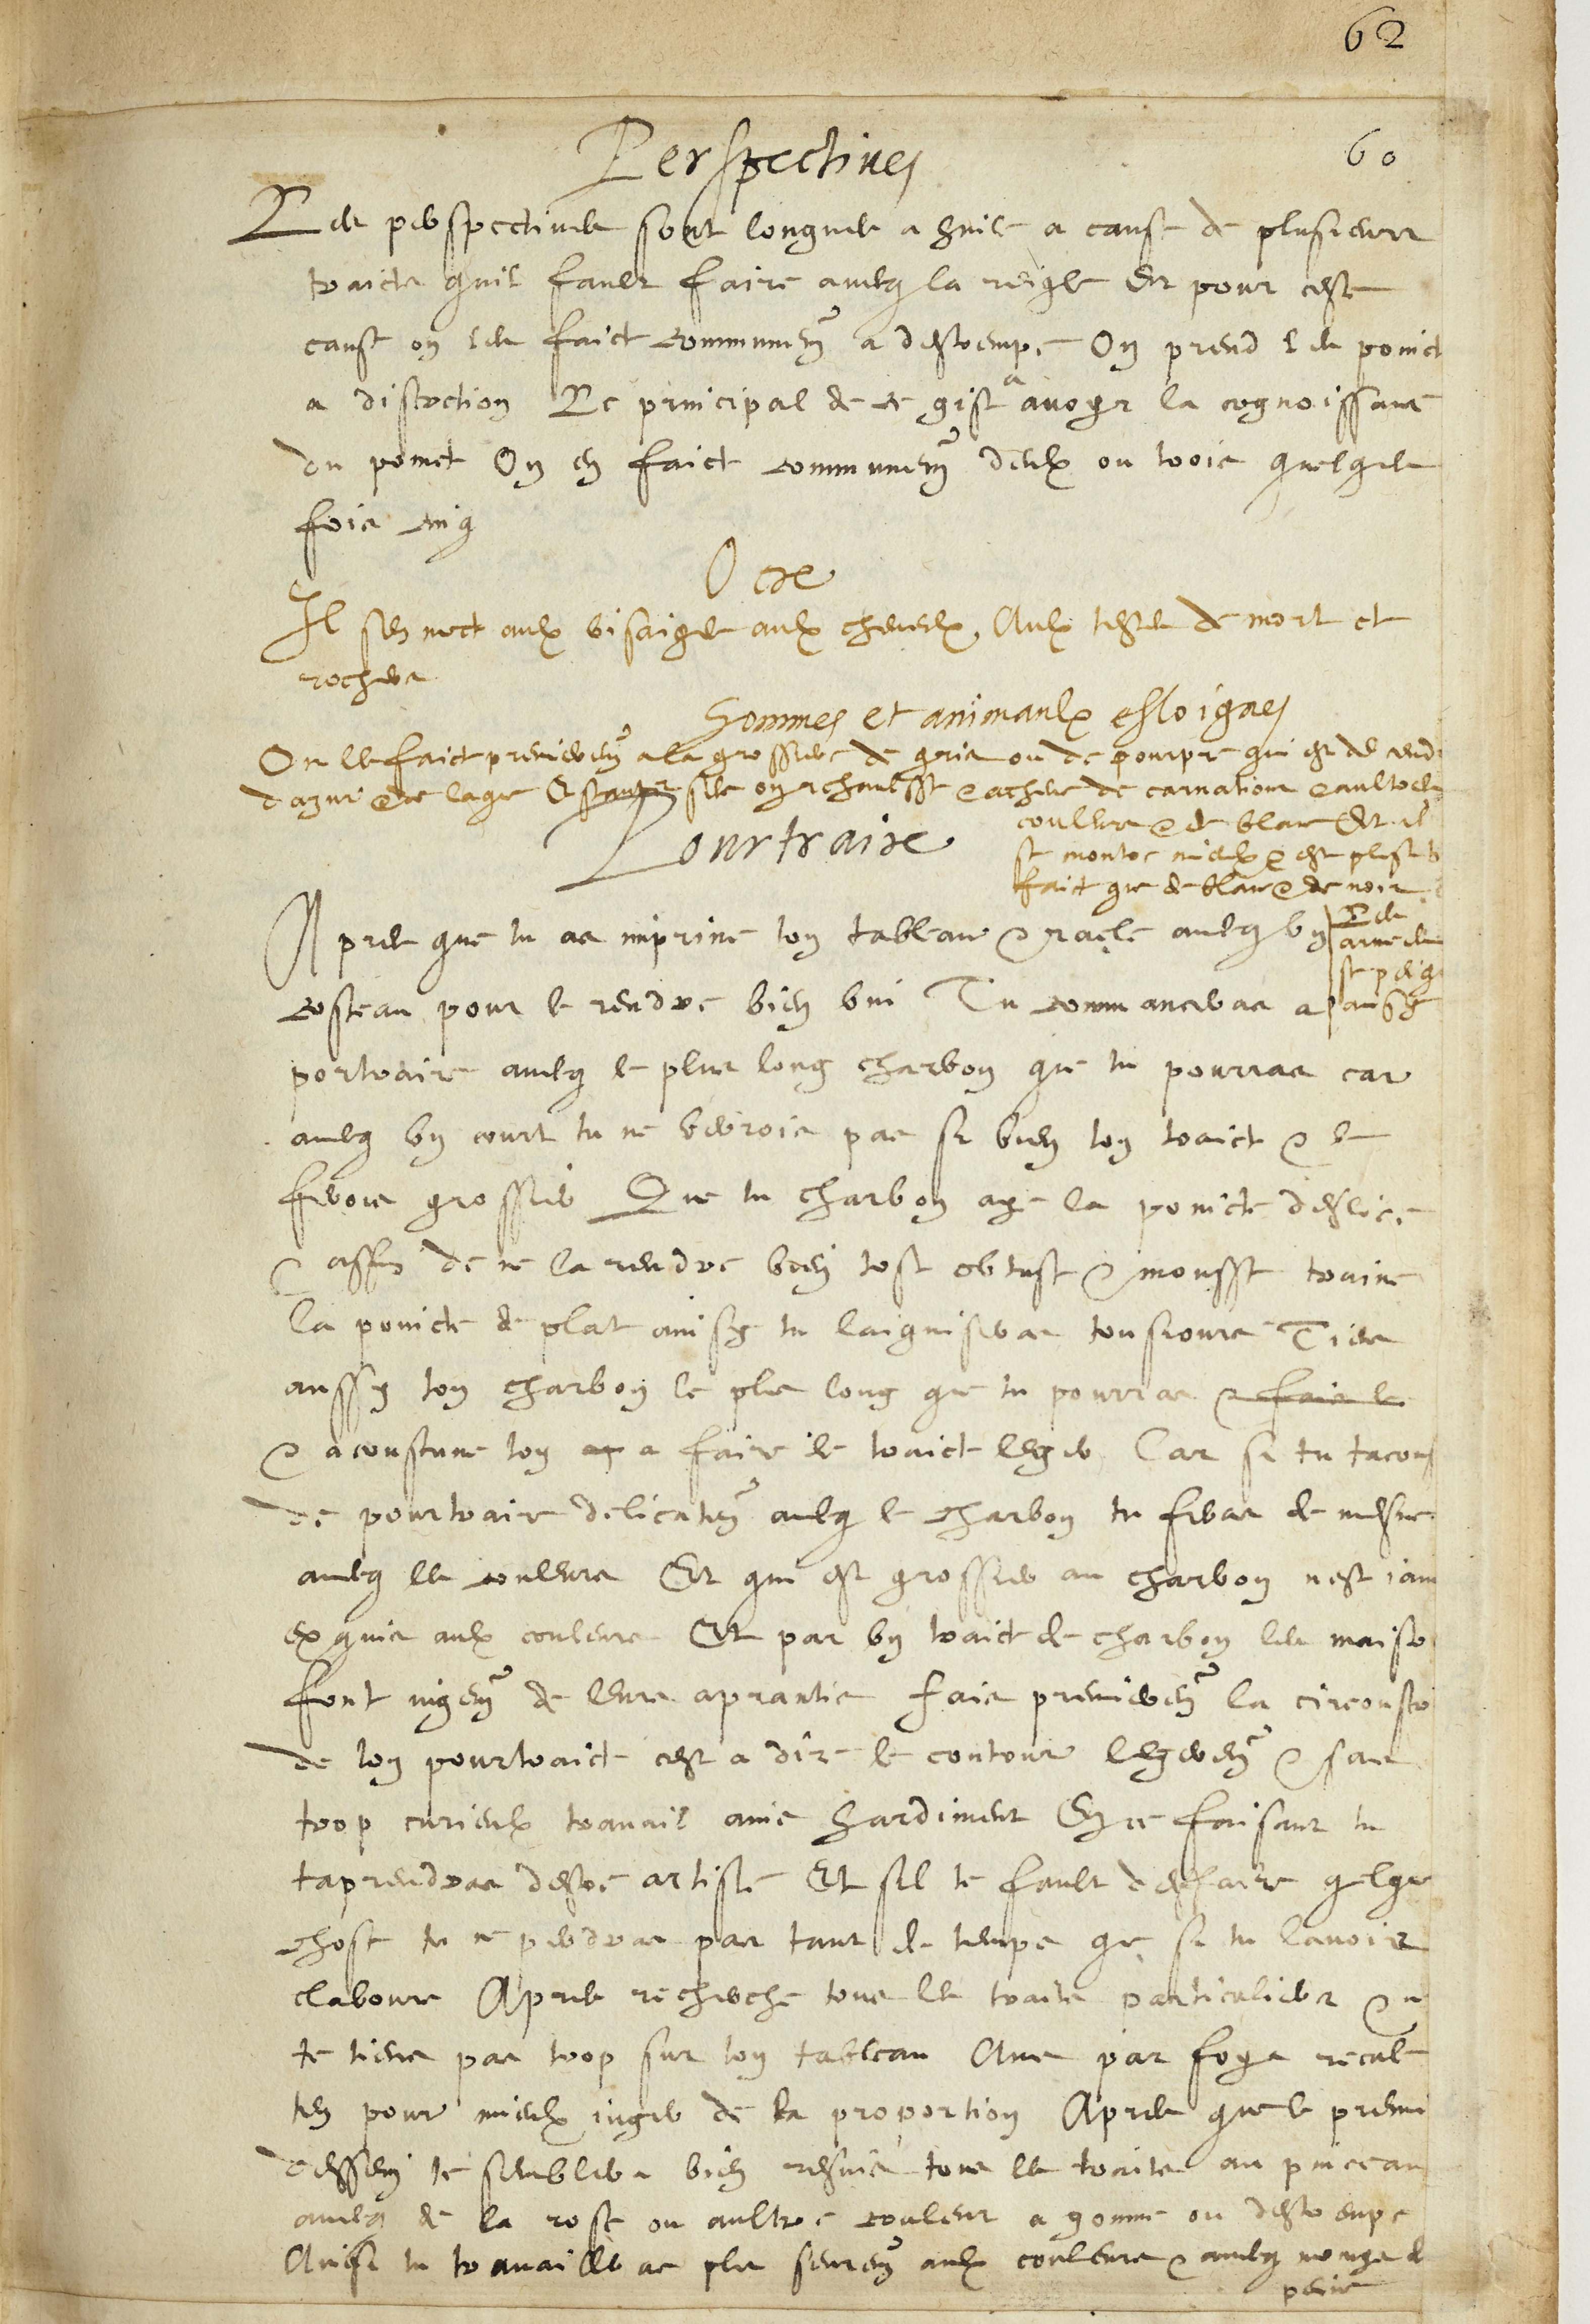 62
60
Perspectives
Les perspectives sont longues a huile a cause de plusieurs
traicts quil fault faire avecq la reigle Et pour ceste
cause on les faict communem a destrempe On prend les poinct
a discretion Le principal de ce gist a avoyr la cognoissance
du poinct On en faict communem deulx ou trois quelques
fois cinq
Ocre
Il sen mect aulx visaiges aulx cheveulx, Aulx testes de mort et
rochers
Hommes et animaulx esloignes
On les faict premierem a la grossiere de gris ou de pourpre qui est de cendr
dazur & de laque Et secs on rehaulsse & acheve de carnations & aultres
couleurs & de blanc Et il
se montre mieulx & est plustost
faict que de blanc & de noir
Pourtraire
Apres que tu as imprime ton tableau & racle avecq un
cousteau pour le rendre bien uni Tu commanceras a
Les
armes
se peig
ainsy
portraire avecq le plus long charbon que tu pourras car
avecq un court tu ne verrois pas si bien ton traict & le
ferois grossier Que tu charbon aye la poincte deslice
& affin de ne la rendre bien tost obtuse & mousse traine
la poincte de plat ainsy tu laiguiseras tousjours Tiens
aussy ton charbon le plus long que tu pourras & fais le
& acoustume ton a faire le traict leger Car si tu tacous
de pourtraire delicatem avecq le charbon tu feras de mesme
avecq les couleurs Et qui est grossier au charbon nest jam
exquis aulx couleurs Et par un traict de charbon les maistr
font jugem de leurs aprantis Fais premierem la circonfer
de ton pourtraict cest a dire le contour legerem & sans
trop curieulx travail ains hardiment En ce faisant tu
taprendras destre artiste Et sil te fault desfaire quelque
chose tu ne perdras pas tant de temps que si tu lavois
elaboure Apres recherche tous les traicts particuliers & ne
te tiens pas trop sur ton tableau Ains par foys recule
ten pour mieulx juger de la proportion Apres que le premi
dessein te semblera bien resuis tous les traicts au pinceau
avecq de la rose ou aultre couleur a gomme ou destrempe
Ainsi tu travailleras plus seurem aulx couleurs & avecq moings de
peine